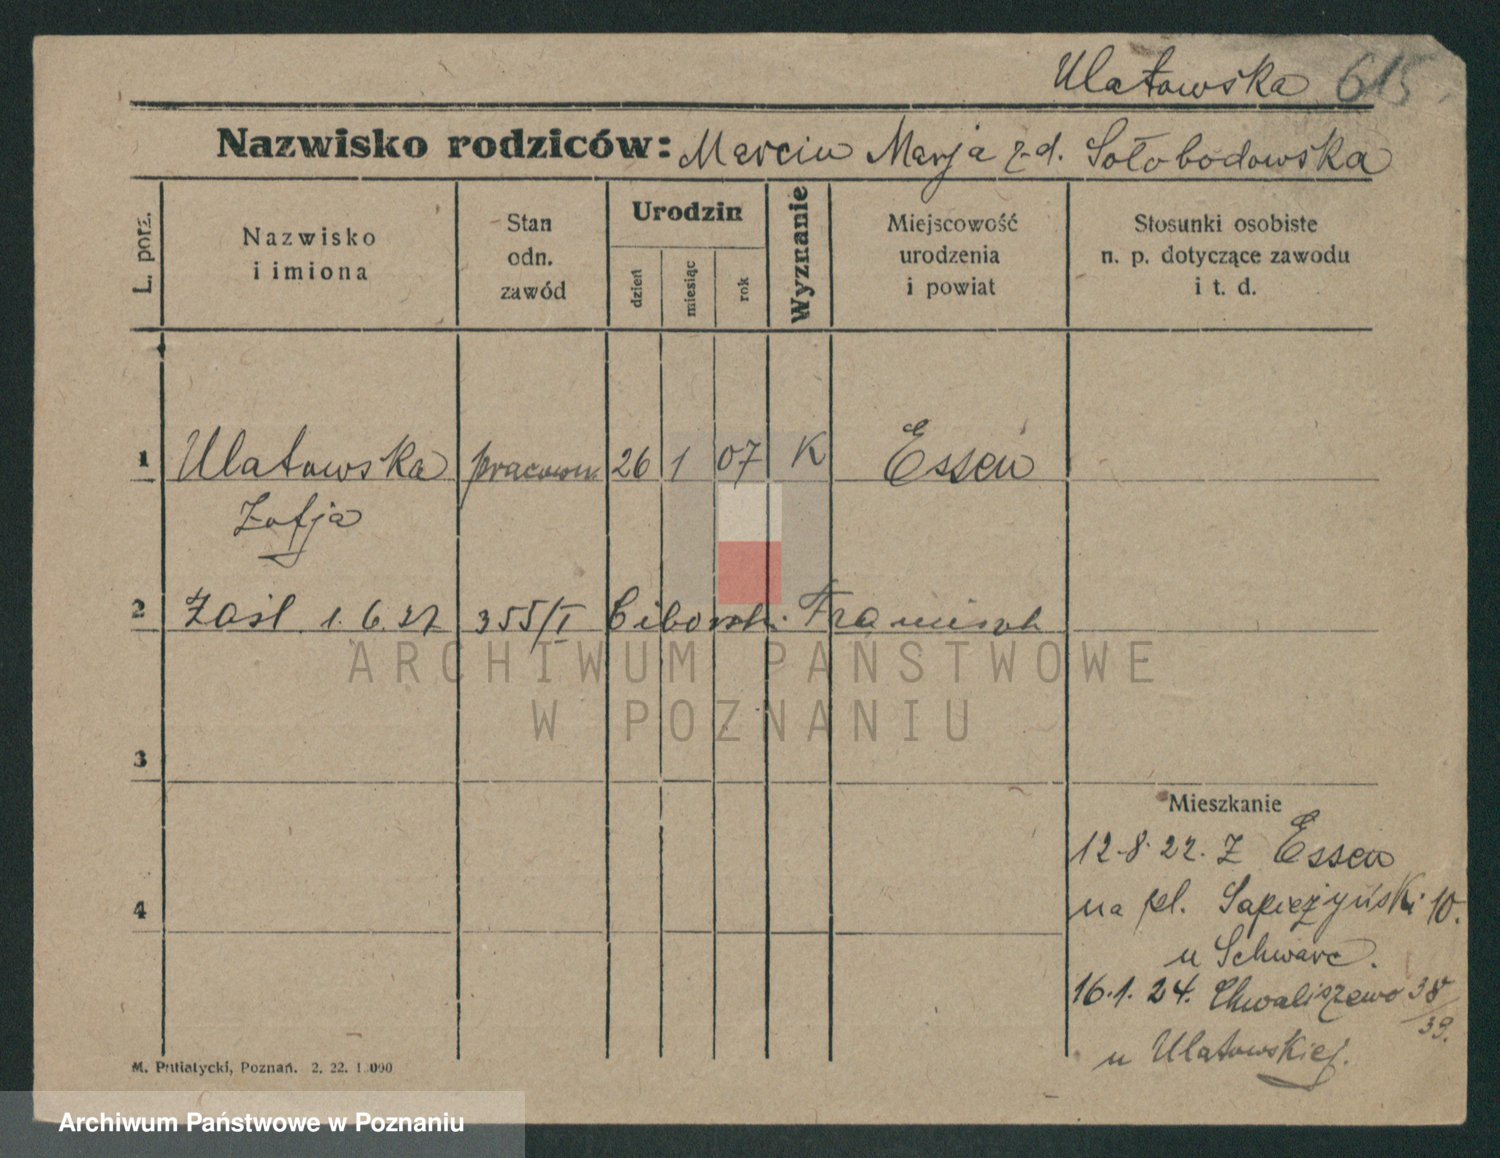 Ulatowska 615
Nazwisko rodziców: Marcin Marja z d. Sołobodowska
L. porz.
Nazwisko
i imiona
Stan
odn.
zawód
Urodzin
dzień
miesiąc
rok
Wyznanie
Miejscowość
urodzenia
i powiat
Stosunki osobiste
n. p. dotyczące zawodu
i t. d.
1 Ulatowska pracown. 26 1 07 K Essen
Zofja
2 Zaśl 1. 6. 27 355/I Ciborski Franciszek
ARCHIWUM PAŃSTWOWE
W POZNANIU
3
Mieszkanie
12.8.22. Z Essen
4
na pl. Sapieżyński 10.
u Schwarc.
16.1.24. Chwaliszewo 38/39.
u Ulatowskiej.
M. Putiatycki, Poznań. 2. 22. 1.000
Archiwum Państwowe w Poznaniu